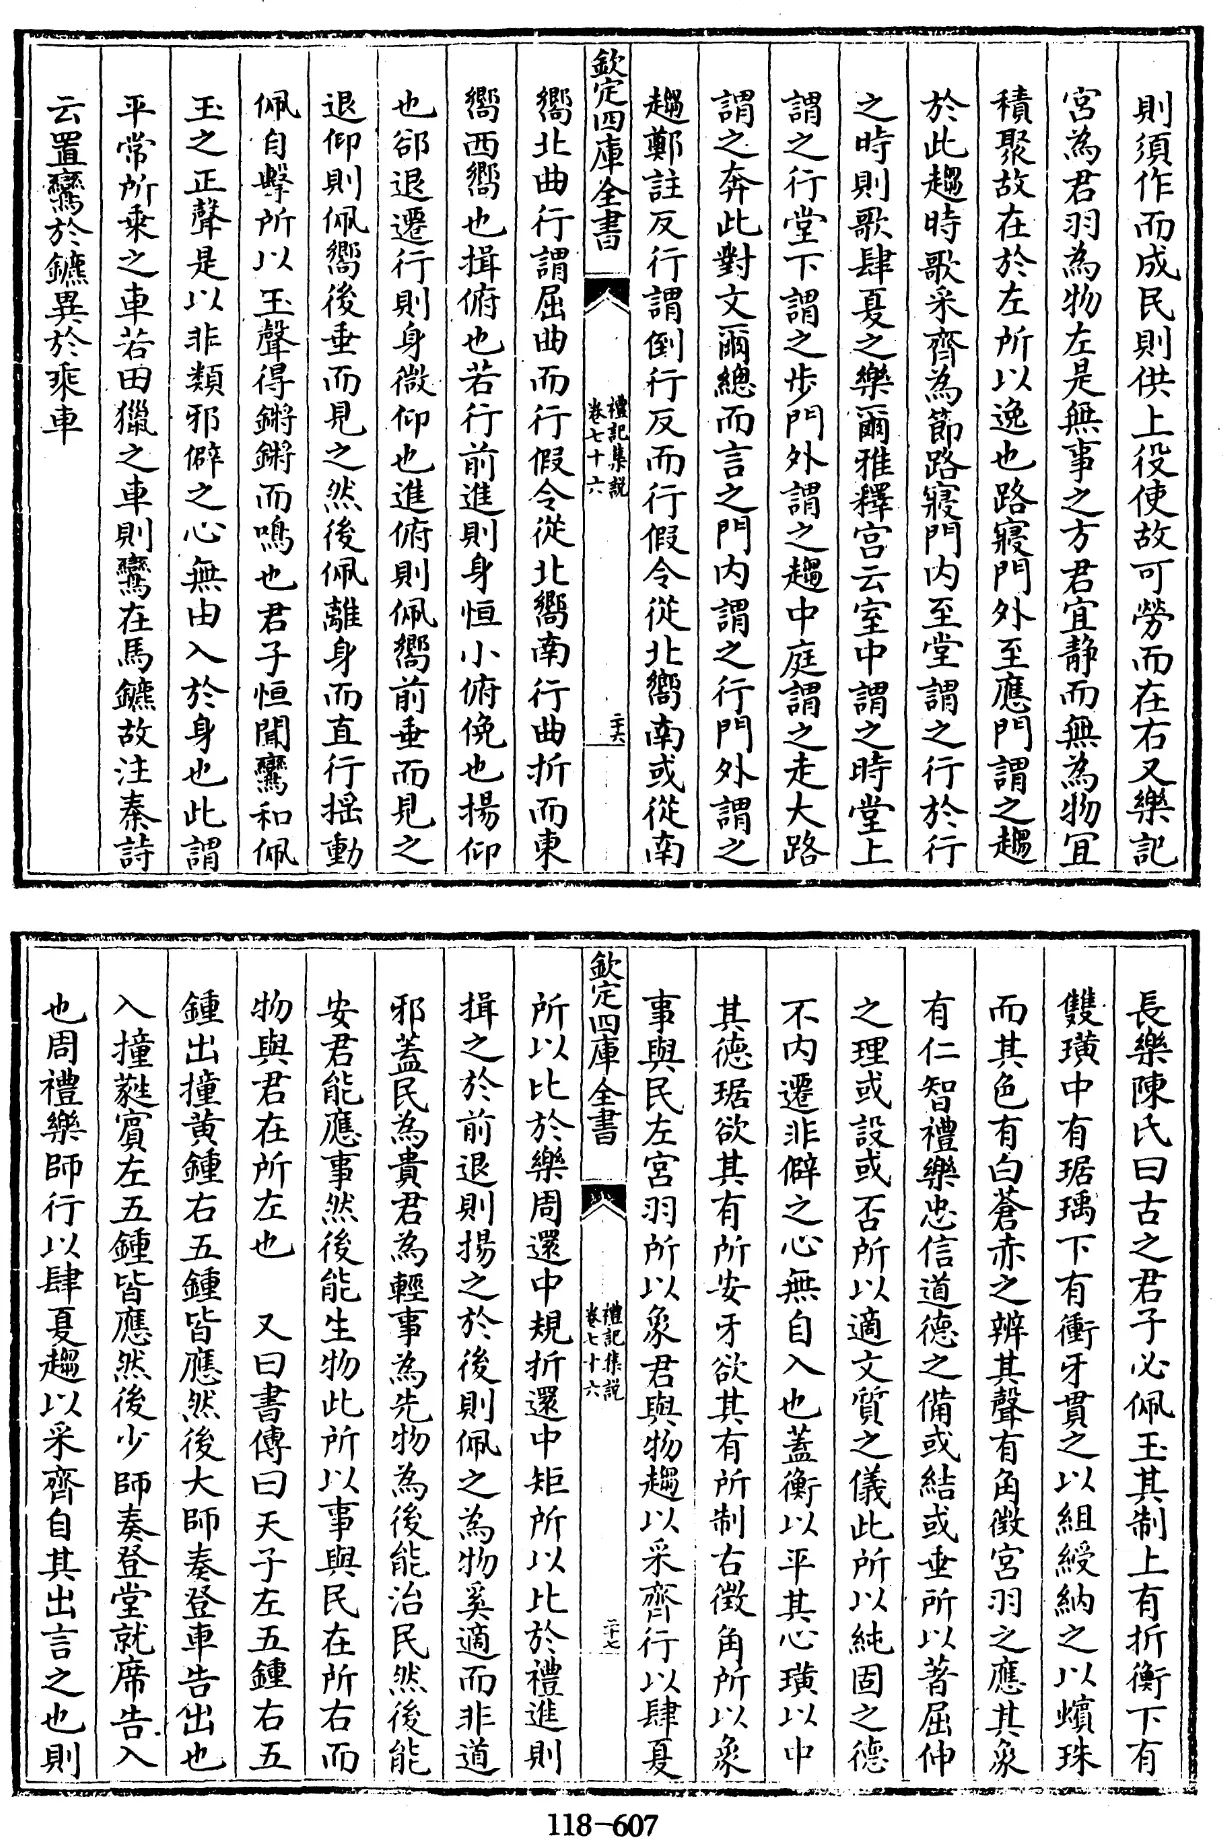 則須作而成民則供上役使故可勞而在右又樂記
宮為君羽為物左是無事之方君宜靜而無為物宜
積聚故在於左所以逸也路寢門外至應門謂之趨
於此趨時歌采齊為節路寢門内至堂謂之行於行
之時則歌肆夏之樂爾雅釋宫云室中謂之時堂上
謂之行堂下謂之步門外謂之趨中庭謂之走大路
謂之奔此對文爾總而言之門内謂之行門外謂之
趨鄭註反行謂倒行反而行假令從北嚮南或從南
欽定四庫全書
禮記集説
卷七十六
二十六
嚮北曲行謂屈曲而行假令從北嚮南行曲折而東
嚮西嚮也揖俯也若行前進則身恒小俯俛也揚仰
也郤退遷行則身微仰也進俯則佩嚮前垂而見之
退仰則佩嚮後垂而見之然後佩離身而直行揺動
佩自擊所以玉聲得鏘鏘而鳴也君子恒聞鸞和佩
玉之正聲是以非類邪僻之心無由入於身也此謂
平常所乗之車若田獵之車則鸞在馬鑣故注秦詩
云置鸞於鑣異於乘車
長樂陳氏曰古之君子必佩玉其制上有折衡下有
雙璜中有琚瑀下有衝牙貫之以組綬納之以蠙珠
而其色有白蒼赤之辨其聲有角徴宮羽之應其象
有仁智禮樂忠信道德之備或結或垂所以著屈伸
之理或設或否所以適文質之儀此所以純固之德
不内遷非僻之心無自入也蓋衡以平其心璜以中
其德琚欲其有所安牙欲其有所制右徴角所以象
事與民左宮羽所以象君與物趨以采齊行以肆夏
欽定四庫全書
禮記集説
卷七十六
二十七
所以比於樂周還中規折還中矩所以比於禮進則
揖之於前退則揚之於後則佩之為物奚適而非道
邪蓋民為貴君為輕事為先物為後能治民然後能
安君能應事然後能生物此所以事與民在所右而
物與君在所左也　又曰書傳曰天子左五鍾右五
鍾出撞黄鍾右五鍾皆應然後大師奏登車告出也
入撞蕤賓左五鍾皆應然後少師奏登堂就席告入
也周禮樂師行以肆夏趨以采齊自其出言之也則
118-607